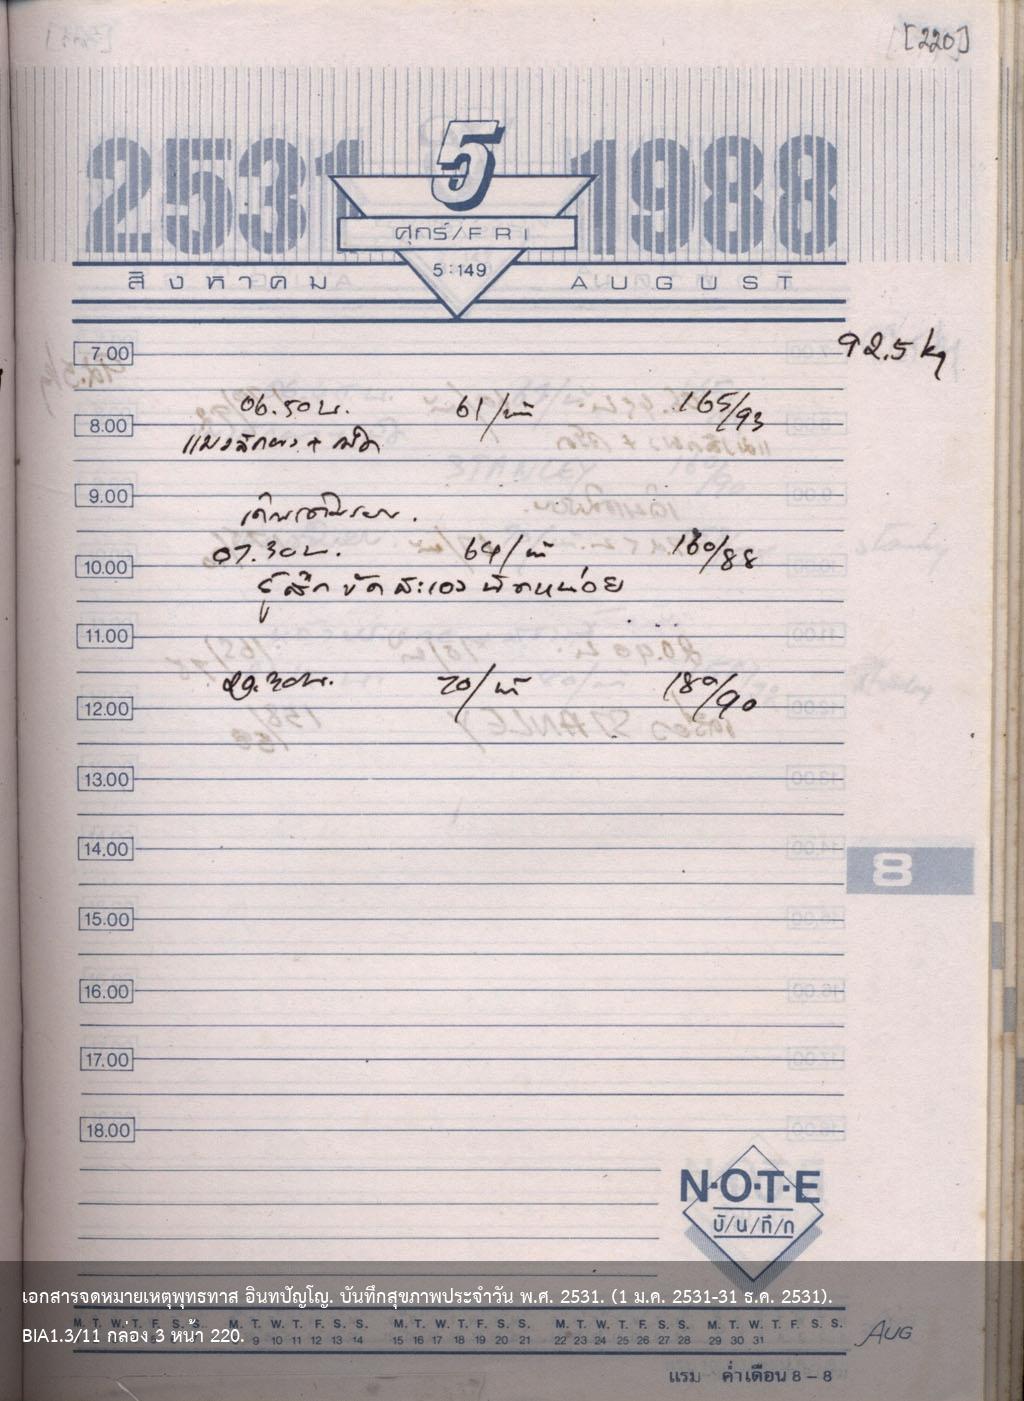 [220]
2531 5 1988
ศุกร์/FRI
5:149
สิงหาคม AUGUST
7.00
92.5 kg
06.50 น. 61/นาที 165/93
8.00
แมงลักผง +
9.00
07.30 น. 64/นาที 160/88
10.00
รู้สึกขัดสะเอวนิดหน่อย
11.00
70/นาที 180/90
12.00
13.00
14.00
8
15.00
16.00
17.00
18.00
N·O·T·E
บั/น/ทึ/ก
เอกสารจดหมายเหตุพุทธทาส อินทปัญโญ. บันทึกสุขภาพประจำวัน พ.ศ. 2531. (1 ม.ค. 2531-31 ธ.ค. 2531).
M. T. W. T. F. S. S. M. T. W. T. F. S. S. M. T. W. T. F. S. S. M. T. W. T. F. S. S. M. T. W. T. F. S. S.
BIA1.3/11 กล่อง 3 หน้า 220. 9 10 11 12 13 14 15 16 17 18 19 20 21 22 23 24 25 26 27 28 29 30 31
AUG
แรม ค่ำเดือน 8 – 8